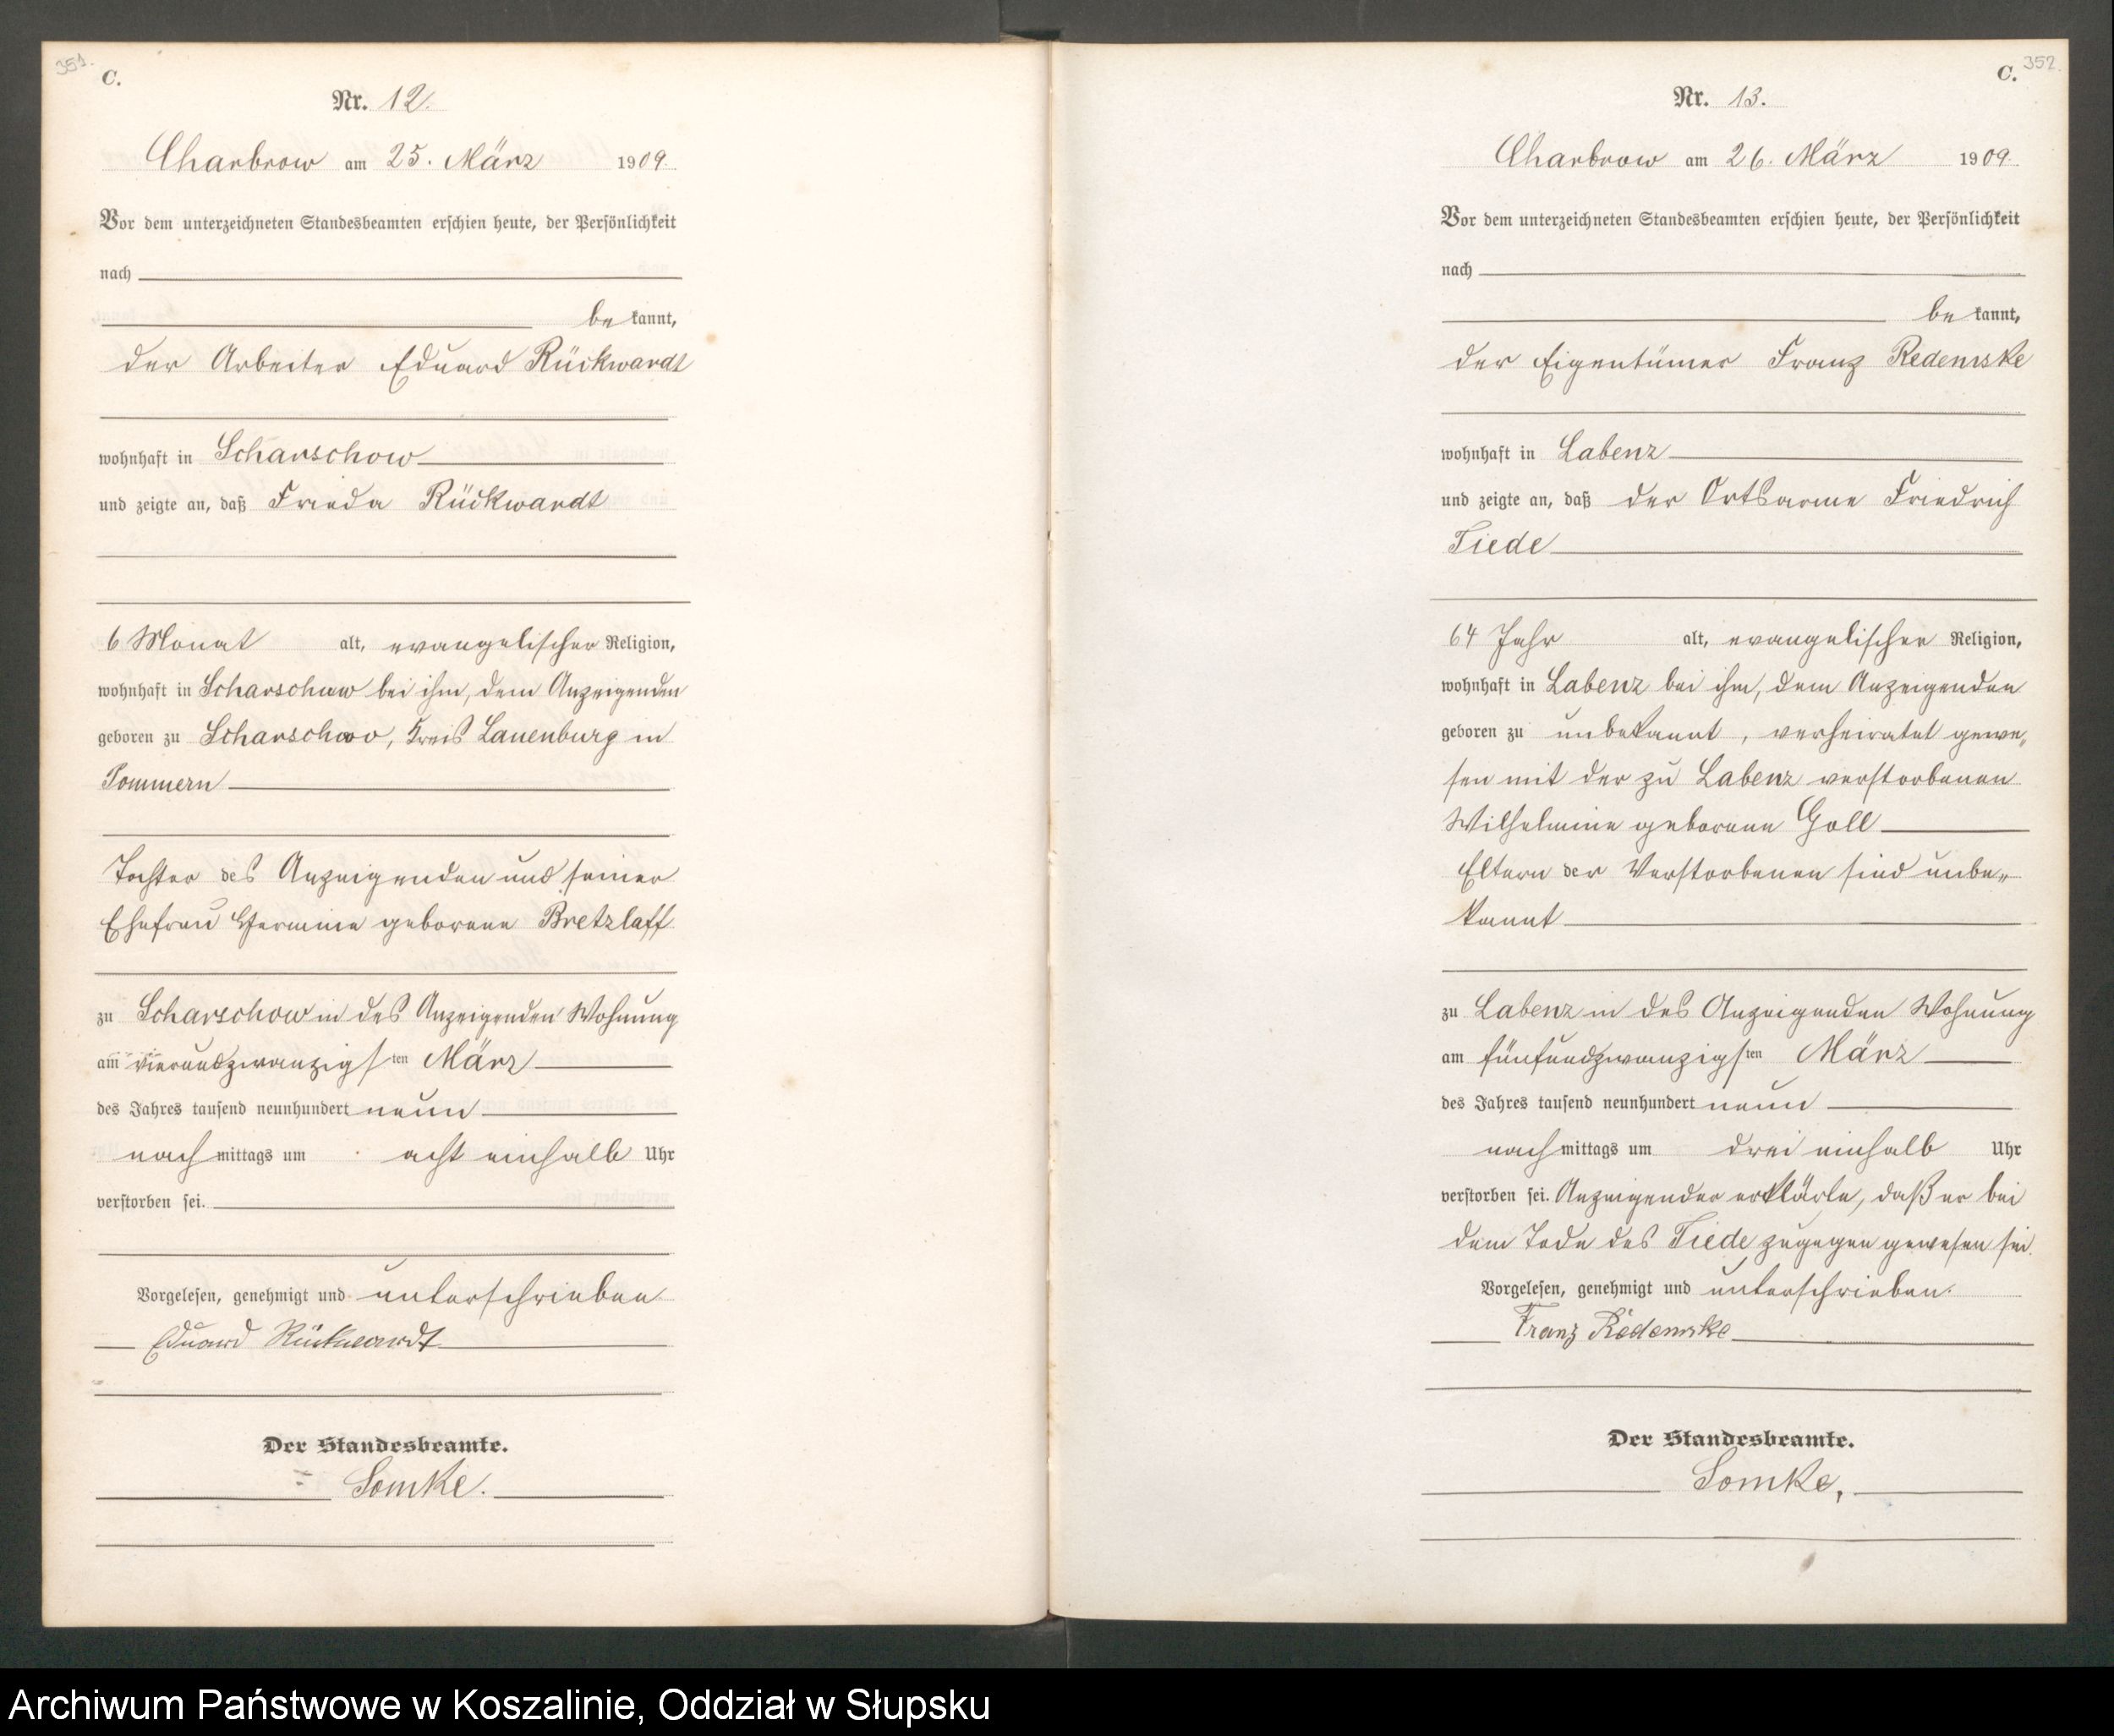 351.
C.
Nr. 12.
Charbrow am 25. März 1909.
Vor dem unterzeichneten Standesbeamten erschien heute, der Persönlichkeit
nach
be kannt,
der Arbeiter Eduard Rückwardt
wohnhaft in Scharschow
und zeigte an, daß Frieda Rückwardt
6 Monat alt, evangelischer Religion,
wohnhaft in Scharschow bei ihm, dem Anzeigenden
geboren zu Scharschow, Kreis Lauenburg in
Pommern
Tochter des Anzeigenden und seiner
Ehefrau Hermine geborene Bretzlaff
zu Scharschow in des Anzeigenden Wohnung
am vierundzwanzigsten März
des Jahres tausend neunhundert neun
nach mittags um acht einhalb Uhr
verstorben sei.
Vorgelesen, genehmigt und unterschrieben.
Eduard Rückwardt
Der Standesbeamte.
Somke.
C. 352.
Nr. 13.
Charbrow am 26. März 1909.
Vor dem unterzeichneten Standesbeamten erschien heute, der Persönlichkeit
nach
be kannt,
der Eigentümer Franz Redemske
wohnhaft in Labenz
und zeigte an, daß der Ortsarme Friedrich
Tiede
64 Jahr alt, evangelischer Religion,
wohnhaft in Labenz bei ihm, dem Anzeigenden
geboren zu unbekannt, verheiratet gewe„
sen mit der zu Labenz verstorbenen
Wilhelmine geborene Goll
Eltern der Verstorbenen sind unbe„
kannt
zu Labenz in des Anzeigenden Wohnung
am fünfundzwanzigsten März
des Jahres tausend neunhundert neun
nach mittags um drei einhalb Uhr
verstorben sei. Anzeigender erklärte, daß er bei
dem Tode des Tiede zugegen gewesen sei.
Vorgelesen, genehmigt und unterschrieben.
Franz Redemske
Der Standesbeamte.
Somke,
Archiwum Państwowe w Koszalinie, Oddział w Słupsku